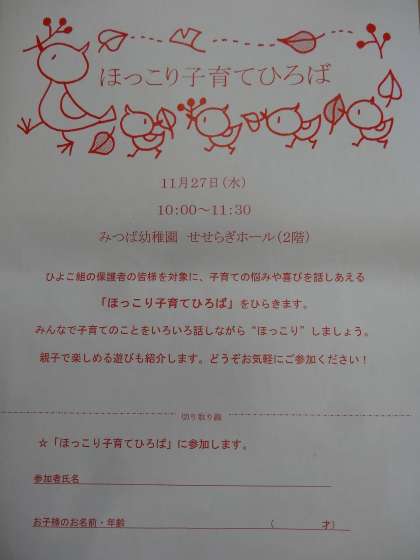 ほっこり子育てひろば
11月27日(水)
10:00～11:30
みつば幼稚園 せせらぎホール(2階)
ひよこ組の保護者の皆様を対象に、子育ての悩みや喜びを話しあえる
「ほっこり子育てひろば」をひらきます。
みんなで子育てのことをいろいろ話しながら“ほっこり”しましょう。
親子で楽しめる遊びも紹介します。どうぞお気軽にご参加ください！
切り取り線
☆「ほっこり子育てひろば」に参加します。
参加者氏名
お子様のお名前・年齢 ( 才)